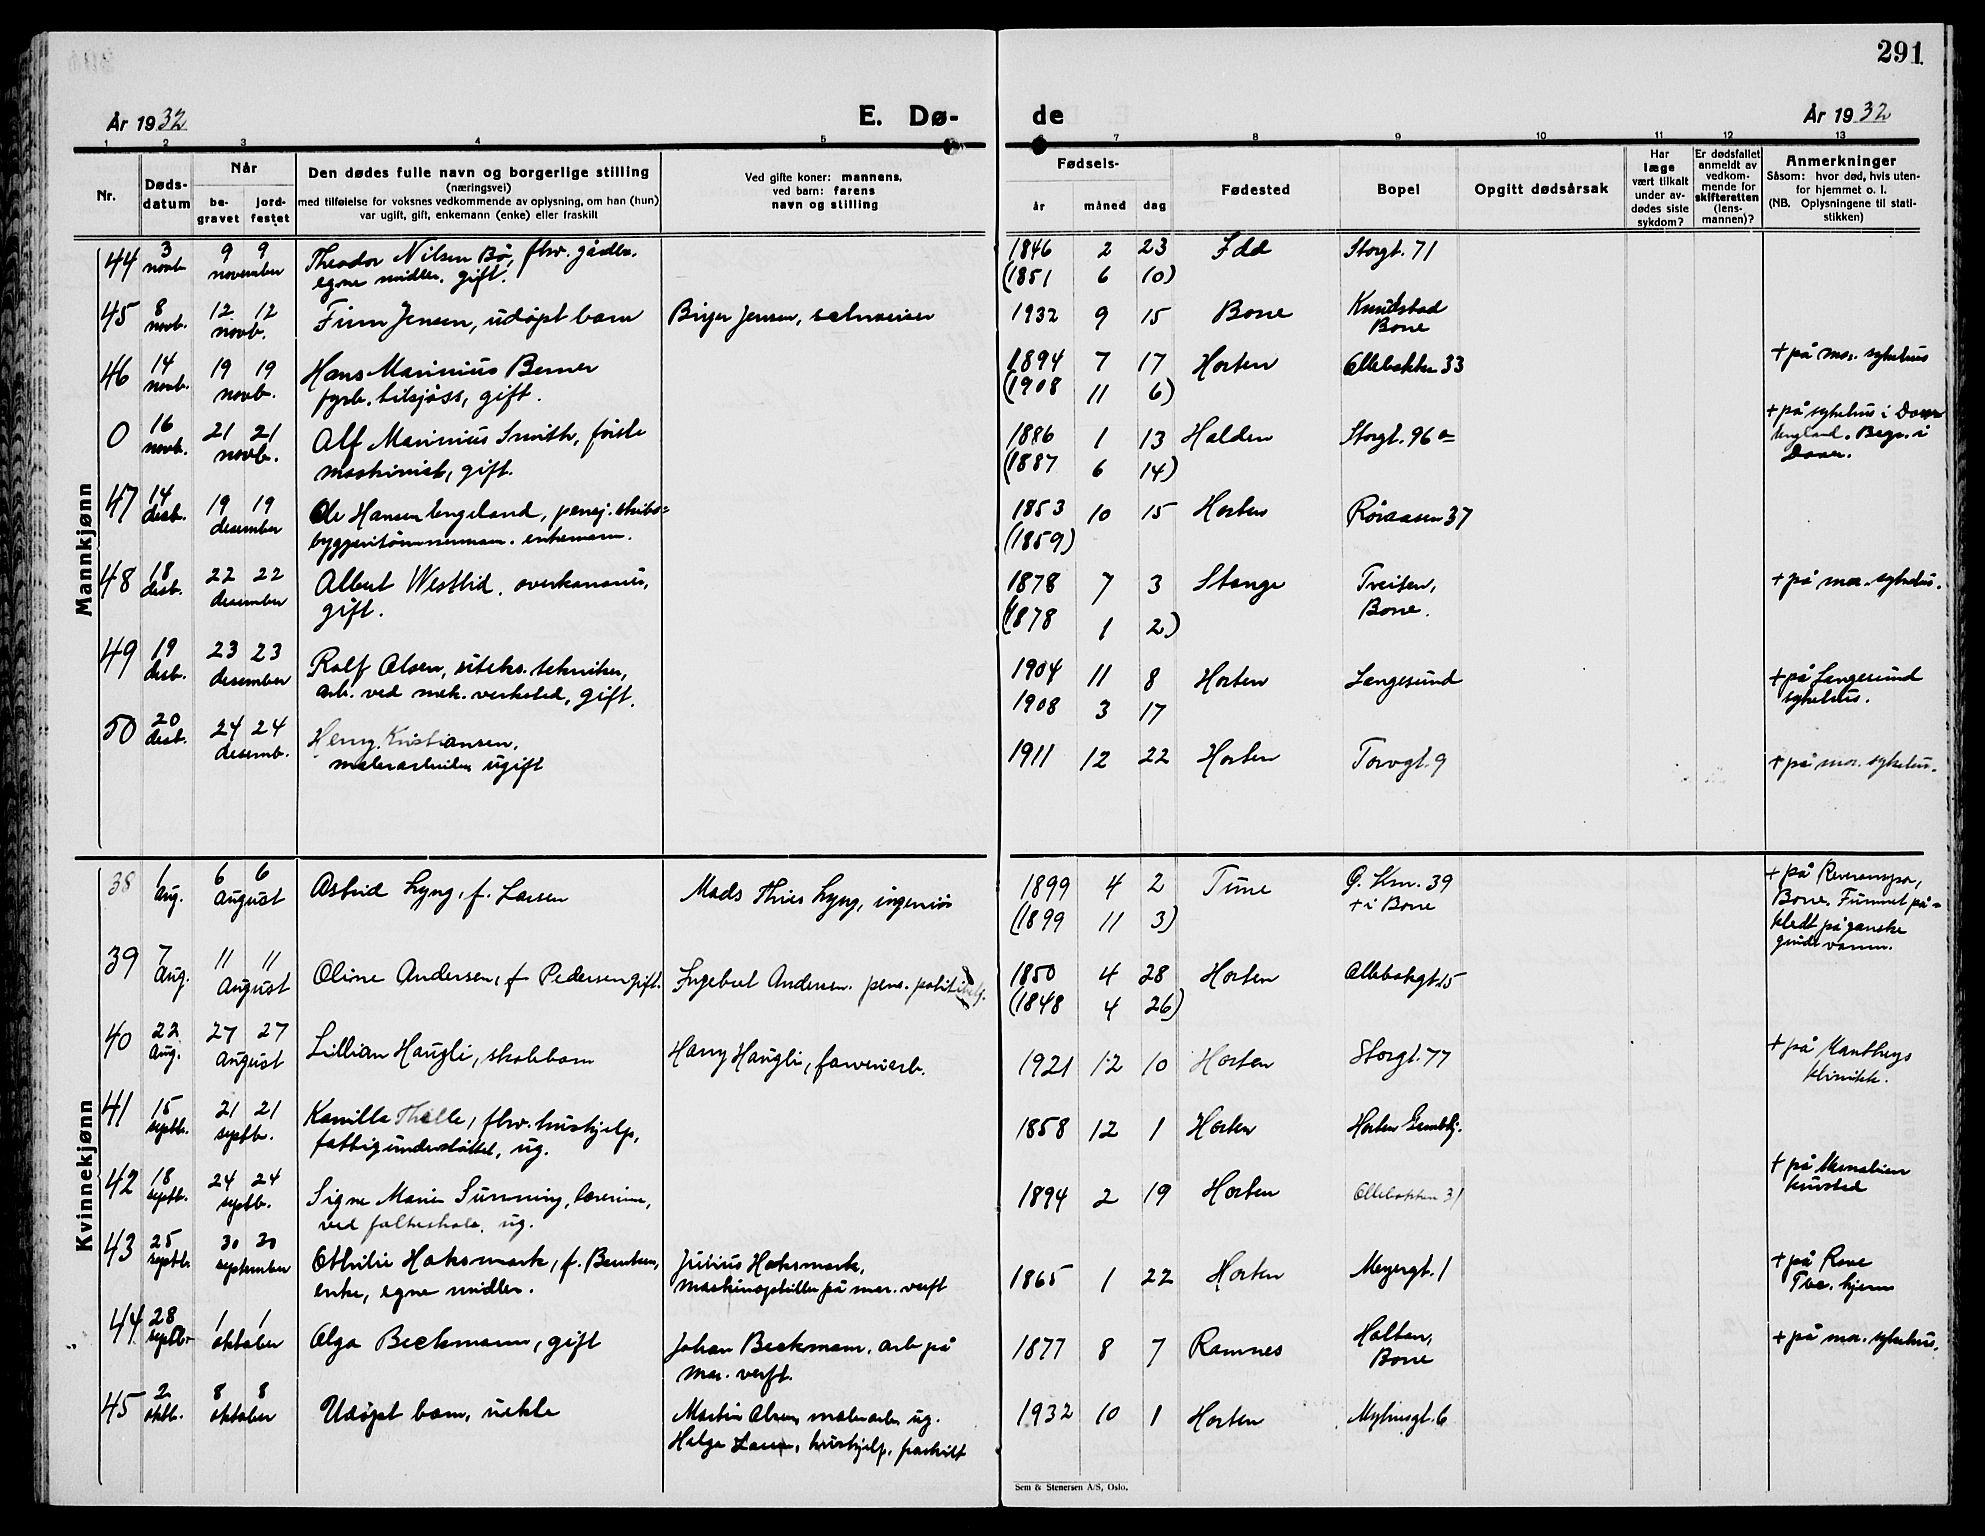 291
År 1932
E. Dø-
de
År 1932
1 2 3 4 5 6 7 8 9 10 11 12 13
Nr.
Døds-
datum
Når
be-
gravet
jord-
festet
Den dødes fulle navn og borgerlige stilling
(næringsvei)
med tilføielse for voksnes vedkommende av oplysning, om han (hun)
var ugift, gift, enkemann (enke) eller fraskilt
Ved gifte koner: mannens,
ved barn: farens
navn og stilling
Fødsels-
år måned dag
Fødested
Bopel
Opgitt dødsårsak
Har
læge
vært tilkalt
under av-
dødes siste
sykdom?
Er dødsfallet
anmeldt av
vedkom-
mende for
skifteretten
(lens-
mannen)?
Anmerkninger
Såsom: hvor død, hvis uten-
for hjemmet o. l.
(NB. Oplysningene til stati-
stikken)
Mannkjønn
44 3 novb. 9 9 november Theodor Nilsen Bø, fhv. gårdbr. 1846 2 23 Idd Storgt. 71
egne midler. gift. (1851 6 10)
45 8 novb. 12 12 novb. Finn Jensen, udøpt barn Birger Jensen, schweiser 1932 9 15 Borre Knudstad
Borre
46 14 novb. 19 19 novb. Hans Marinius Berner 1894 7 17 Horten Ollebakken 33 + på mar. sykehus
fyrb. tilsjøss, gift. (1908 11 6)
0 16 novb. 21 21 novb. Alf Marinius Smith, første 1886 1 13 Halden Storgt. 96 a + på sykehus i Dover
maskinist, gift. (1887 6 14) England. Begr. i
Dover.
47 14 desb. 19 19 desember Ole Hansen Engeland, pensj. skibs= 1853 10 15 Horten Røraasen 37
byggeritømmermann. enkemann. (1859)
48 18 desb. 22 22 desember Albert Westlid. overkanoner, 1878 7 3 Stange Treiten, + på mar. sykehus.
gift. (1878 1 2) Borre.
49 19 desb. 23 23 desember Rolf Olsen, tekniker, 1904 11 8 Horten Langesund + på Langesund
arb. ved mek. verksted, gift. 1908 3 17 sykehus.
50 20 desb. 24 24 desemb. Henry Kristiansen, 1911 12 22 Horten Torvgt. 9 + på mar. sykehus.
malerarbeider ugift
Kvinnekjønn
38 1 aug. 6 6 august Astrid Lyng, f. Larsen Mads Thies Lyng, ingeniør 1899 4 2 Time G. Km. 39 + på
(1899 11 3) + i Borre Borre. Funnet på=
kledt på ganske
grundt vann.
39 7 aug. 11 11 august Oline Andersen, f Pedersen gift. Ingebret Andersen. pens. politibetj. 1850 4 28 Horten Ollebakgt. 15
(1848 4 26)
40 22 aug. 27 27 august Lillian Haugli, skolebarn Harry Haugli, farveriarb. 1921 12 10 Horten Storgt. 77 + på
klinikk.
41 15 septb. 21 21 septb. Kamilla Thelle, fhv. hushjelp, 1858 12 1 Horten Horten Gamlehj.
fattigunderstøttet, ug.
42 18 septb. 24 24 septb. Signe Marie Sunning, lærerinne, 1894 2 19 Horten Ollebakken 31 + på
ved folkeskole, ug. kursted
43 25 septb. 30 30 september Othilie Haksmark, f. Berntsen, Julius Haksmark, 1865 1 22 Horten Meyergt. 1 + på Rove
enke, egne midler. maskinopstiller på mar. verft Tbc. hjem
44 28 septb. 1 1 oktober Olga Beckmann, gift Johan Beckmann. arb på 1877 8 7 Ramnes Holtan, + på mar. sykehus.
mar. verft. Borre
45 2 oktb. 8 8 oktober Udøpt barn, uekte Martin Olsen, malerarb. ug. 1932 10 1 Horten Myhresgt. 6
Helga Larsen, hushjelp, fraskilt
Sem & Stenersen A/S, Oslo.